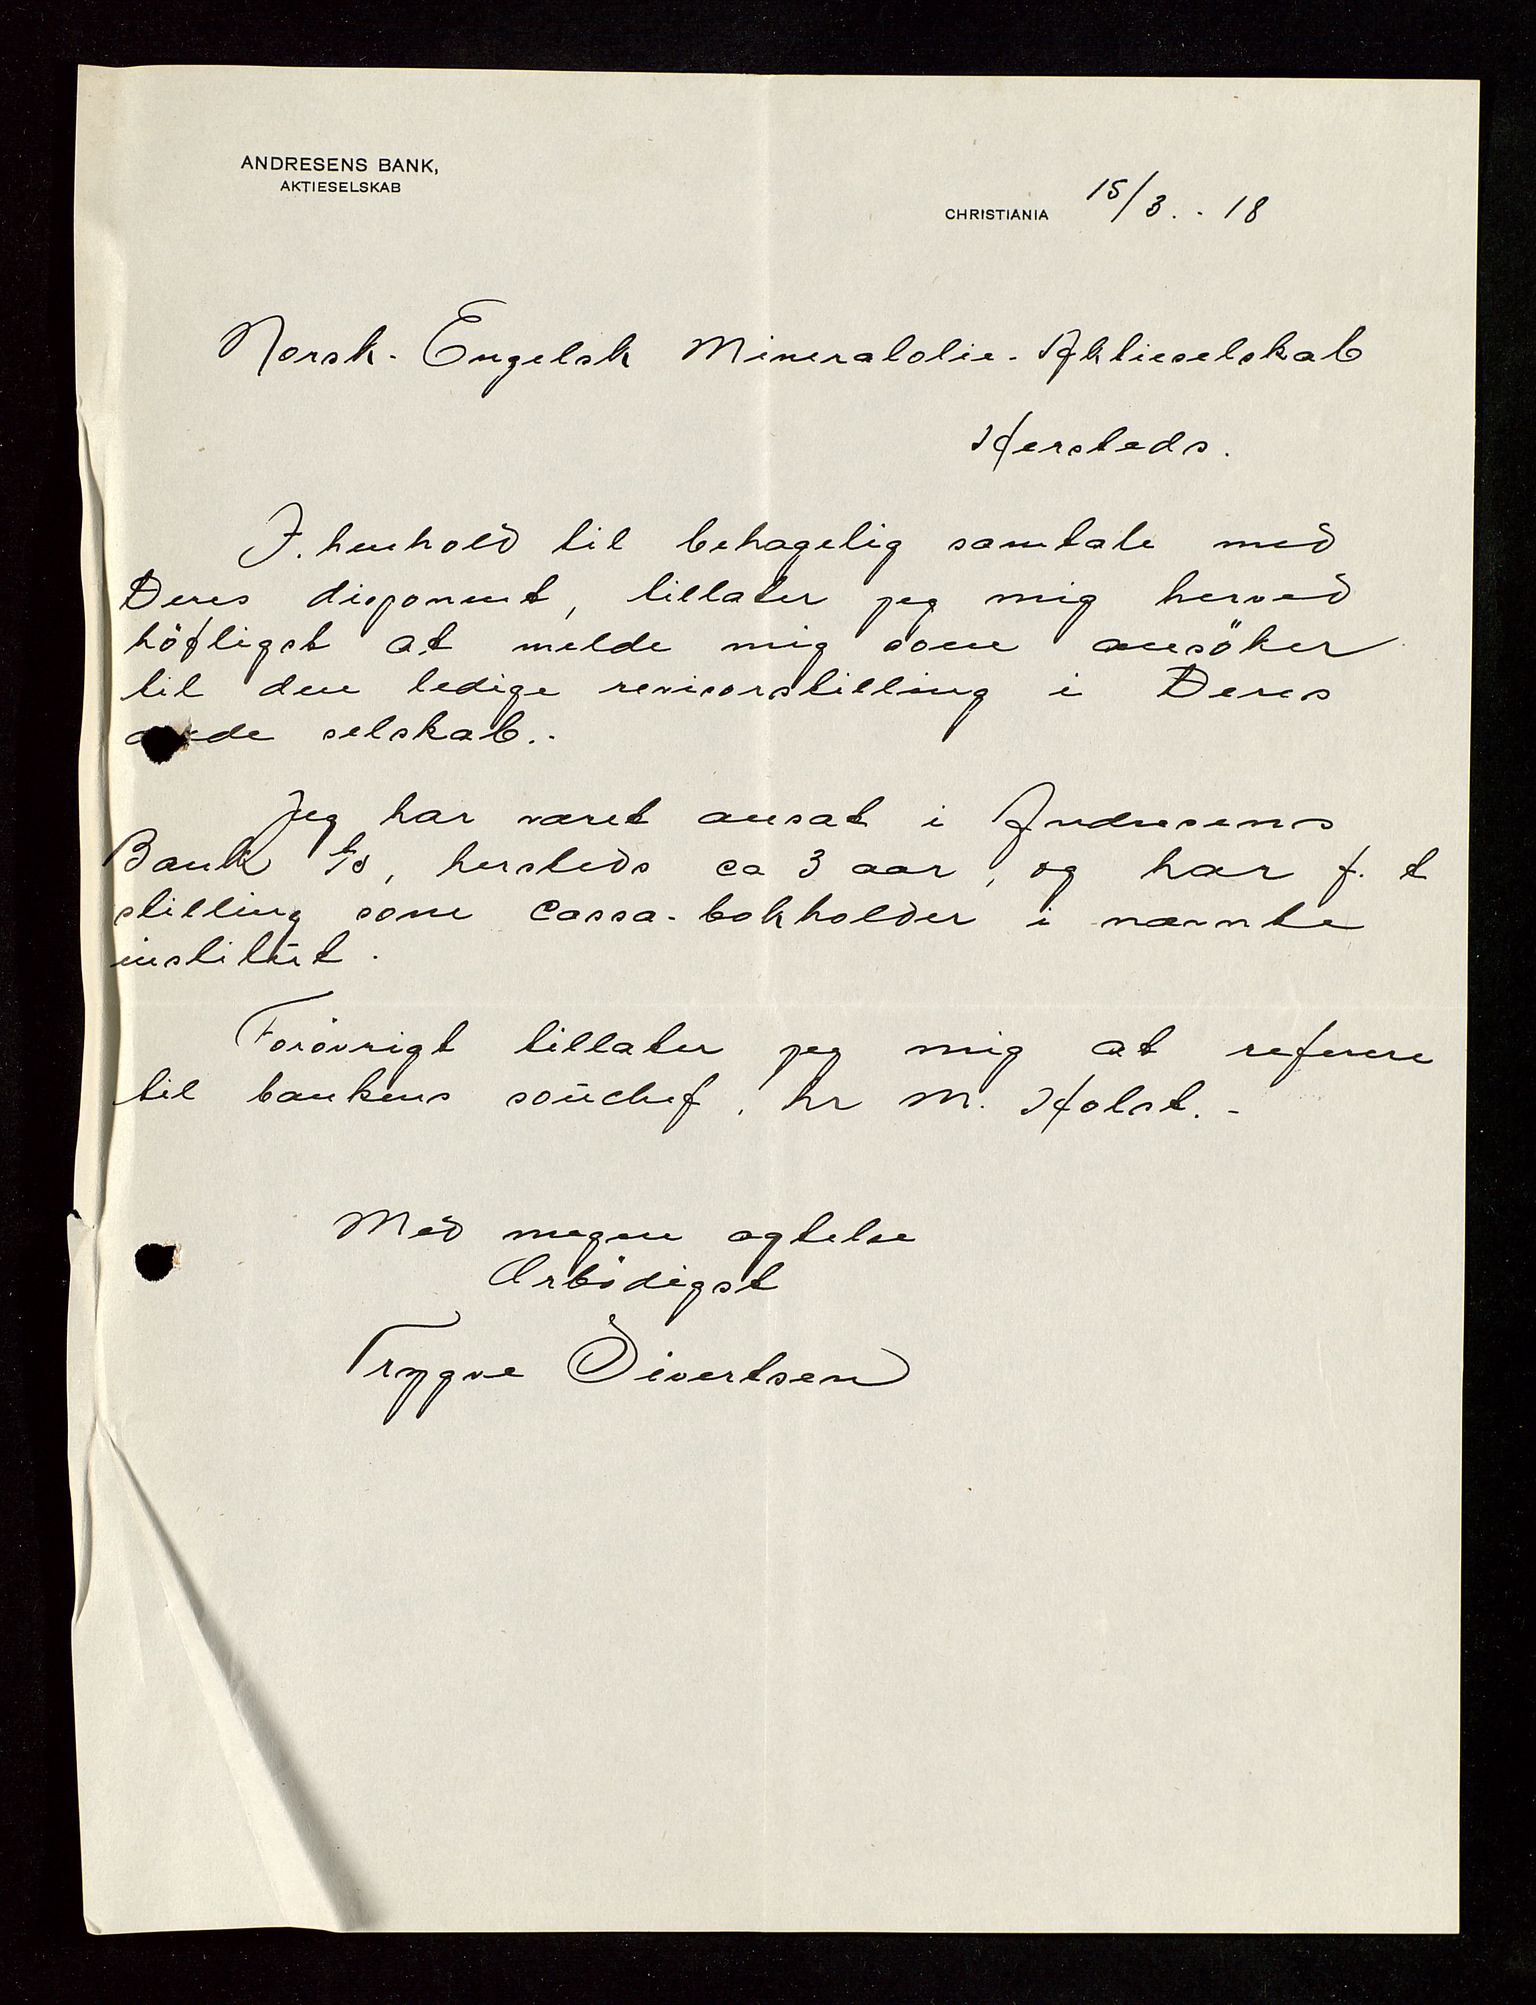 ANDRESENS BANK,
AKTIESELSKAB
CHRISTIANIA 15/3. - 18
Norsk-Engelsk Mineralolie-Aktieselskab
Hersteds.
I henhold til behagelig samtale med
Deres disponent, tillater jeg mig herved
höfligst at melde mig som ansöker
til den ledige revisorstilling i Deres
ærede selskab.-
Jeg har været ansat i Andresens
Bank A/S, hersteds ca 3 aar, og har f. t
stilling som cassa-bokholder i nævnte
institut.
Forövrigt tillater jeg mig at referere
til bankens souchef, hr M. Holst.-
Med megen agtelse
Ærbödigst
Trygve Sivertsen